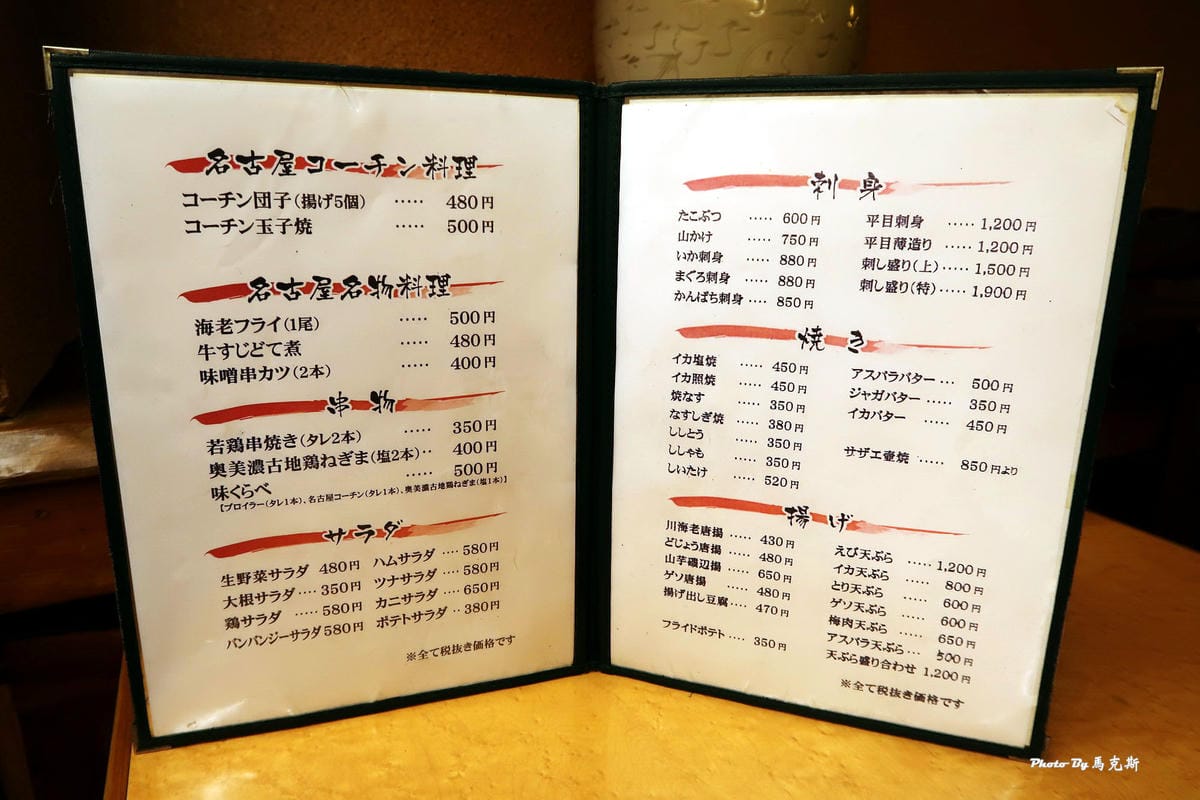 名古屋コーチン料理
コーチン団子(揚げ5個) ····· 480円
コーチン玉子焼 ····· 500円
名古屋名物料理
海老フライ(1尾) ····· 500円
牛すじどて煮 ····· 480円
味噌串カツ(2本) ····· 400円
串物
若鶏串焼き(タレ2本) ····· 350円
奥美濃古地鶏ねぎま(塩2本)·· 400円
味くらべ ····· 500円
【ブロイラー(タレ1本)、名古屋コーチン(タレ1本)、奥美濃古地鶏ねぎま(塩1本)】
サラダ
生野菜サラダ 480円
大根サラダ ···· 350円
鶏サラダ ····· 580円
バンバンジーサラダ 580円
ハムサラダ ···· 580円
ツナサラダ ···· 580円
カニサラダ ···· 650円
ポテトサラダ ·· 380円
※全て税抜き価格です
刺身
たこぶつ ····· 600円
山かけ ····· 750円
いか刺身 ····· 880円
まぐろ刺身 ····· 880円
かんぱち刺身 ···· 850円
平目刺身 ····· 1,200円
平目薄造り ····· 1,200円
刺し盛り(上) ····· 1,500円
刺し盛り(特) ····· 1,900円
焼き
イカ塩焼 ····· 450円
イカ照焼 ····· 450円
焼なす ····· 350円
なすしぎ焼 ····· 380円
ししとう ····· 350円
ししゃも ····· 350円
しいたけ ····· 520円
アスパラバター ··· 500円
ジャガバター ····· 350円
イカバター ····· 450円
サザエ壺焼 ····· 850円より
揚げ
川海老唐揚 ····· 430円
どじょう唐揚 ····· 480円
山芋磯辺揚 ····· 650円
ゲソ唐揚 ····· 480円
揚げ出し豆腐 ···· 470円
フライドポテト ···· 350円
えび天ぷら ····· 1,200円
イカ天ぷら ····· 800円
とり天ぷら ····· 600円
ゲソ天ぷら ····· 600円
梅肉天ぷら ····· 650円
アスパラ天ぷら ··· 500円
天ぷら盛り合わせ 1,200円
※全て税抜き価格です
Photo By 馬克斯